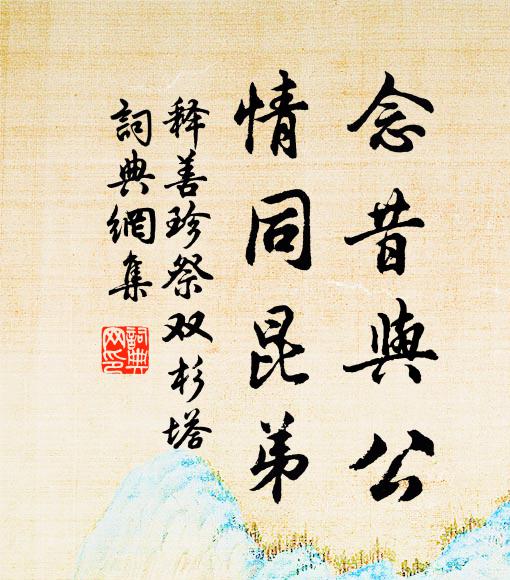 念昔與公
情同昆弟
释善珍祭双杉塔
詞典網集
詞典網印